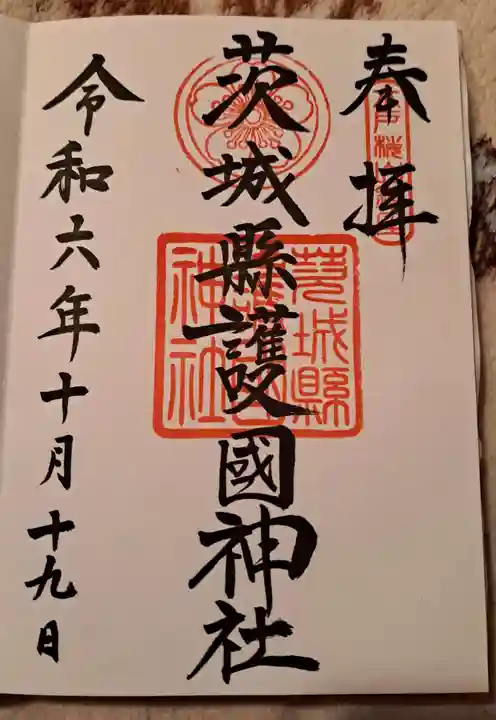 奉拝
茨城縣護國神社
茨城縣護國神社
令和六年十月十九日